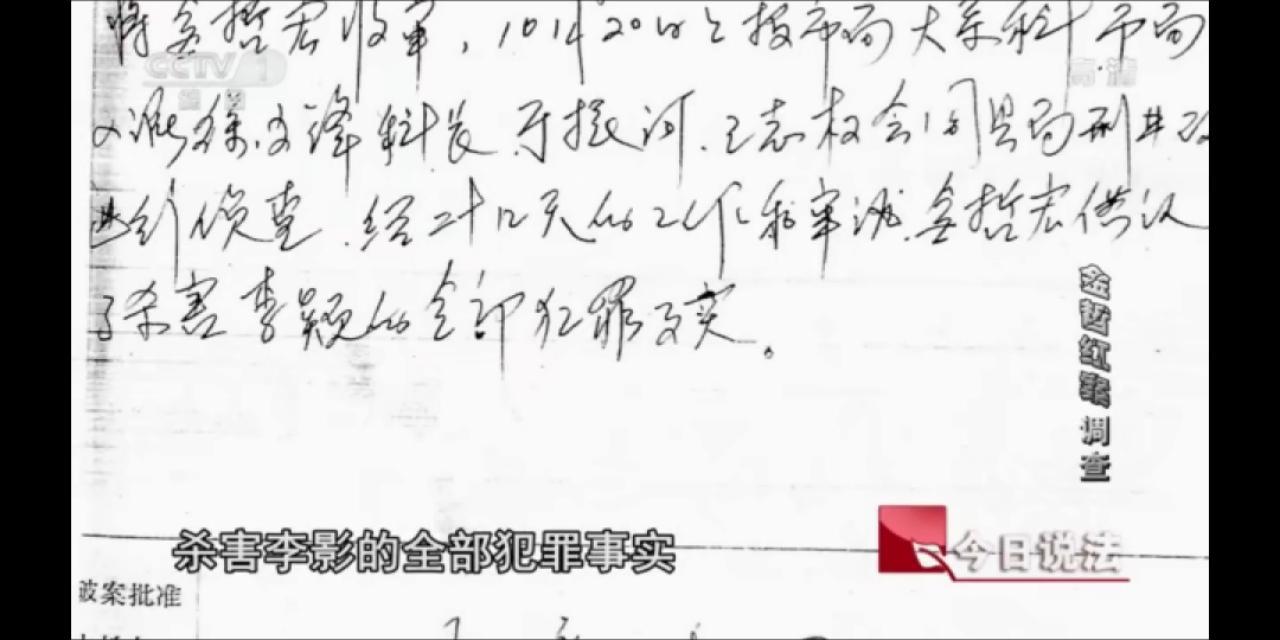 将金哲宏收审,10月20日上报市局大案科,市局
派徐文锋科长、于振河、王志权会同县局刑警队
进行侦查,经二十几天的工作和审讯,金哲宏供认
了杀害李颖的全部犯罪事实。
CCTV 1
综合
高清
金哲红案调查
杀害李影的全部犯罪事实
今日说法
破案批准